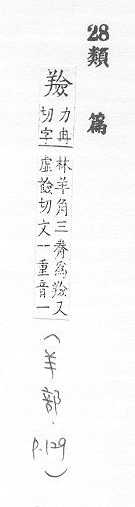 28類篇
羷
力冉
切字
林羊角三觠爲羷又
虛檢切文一重音一
(羊部.
P.129)